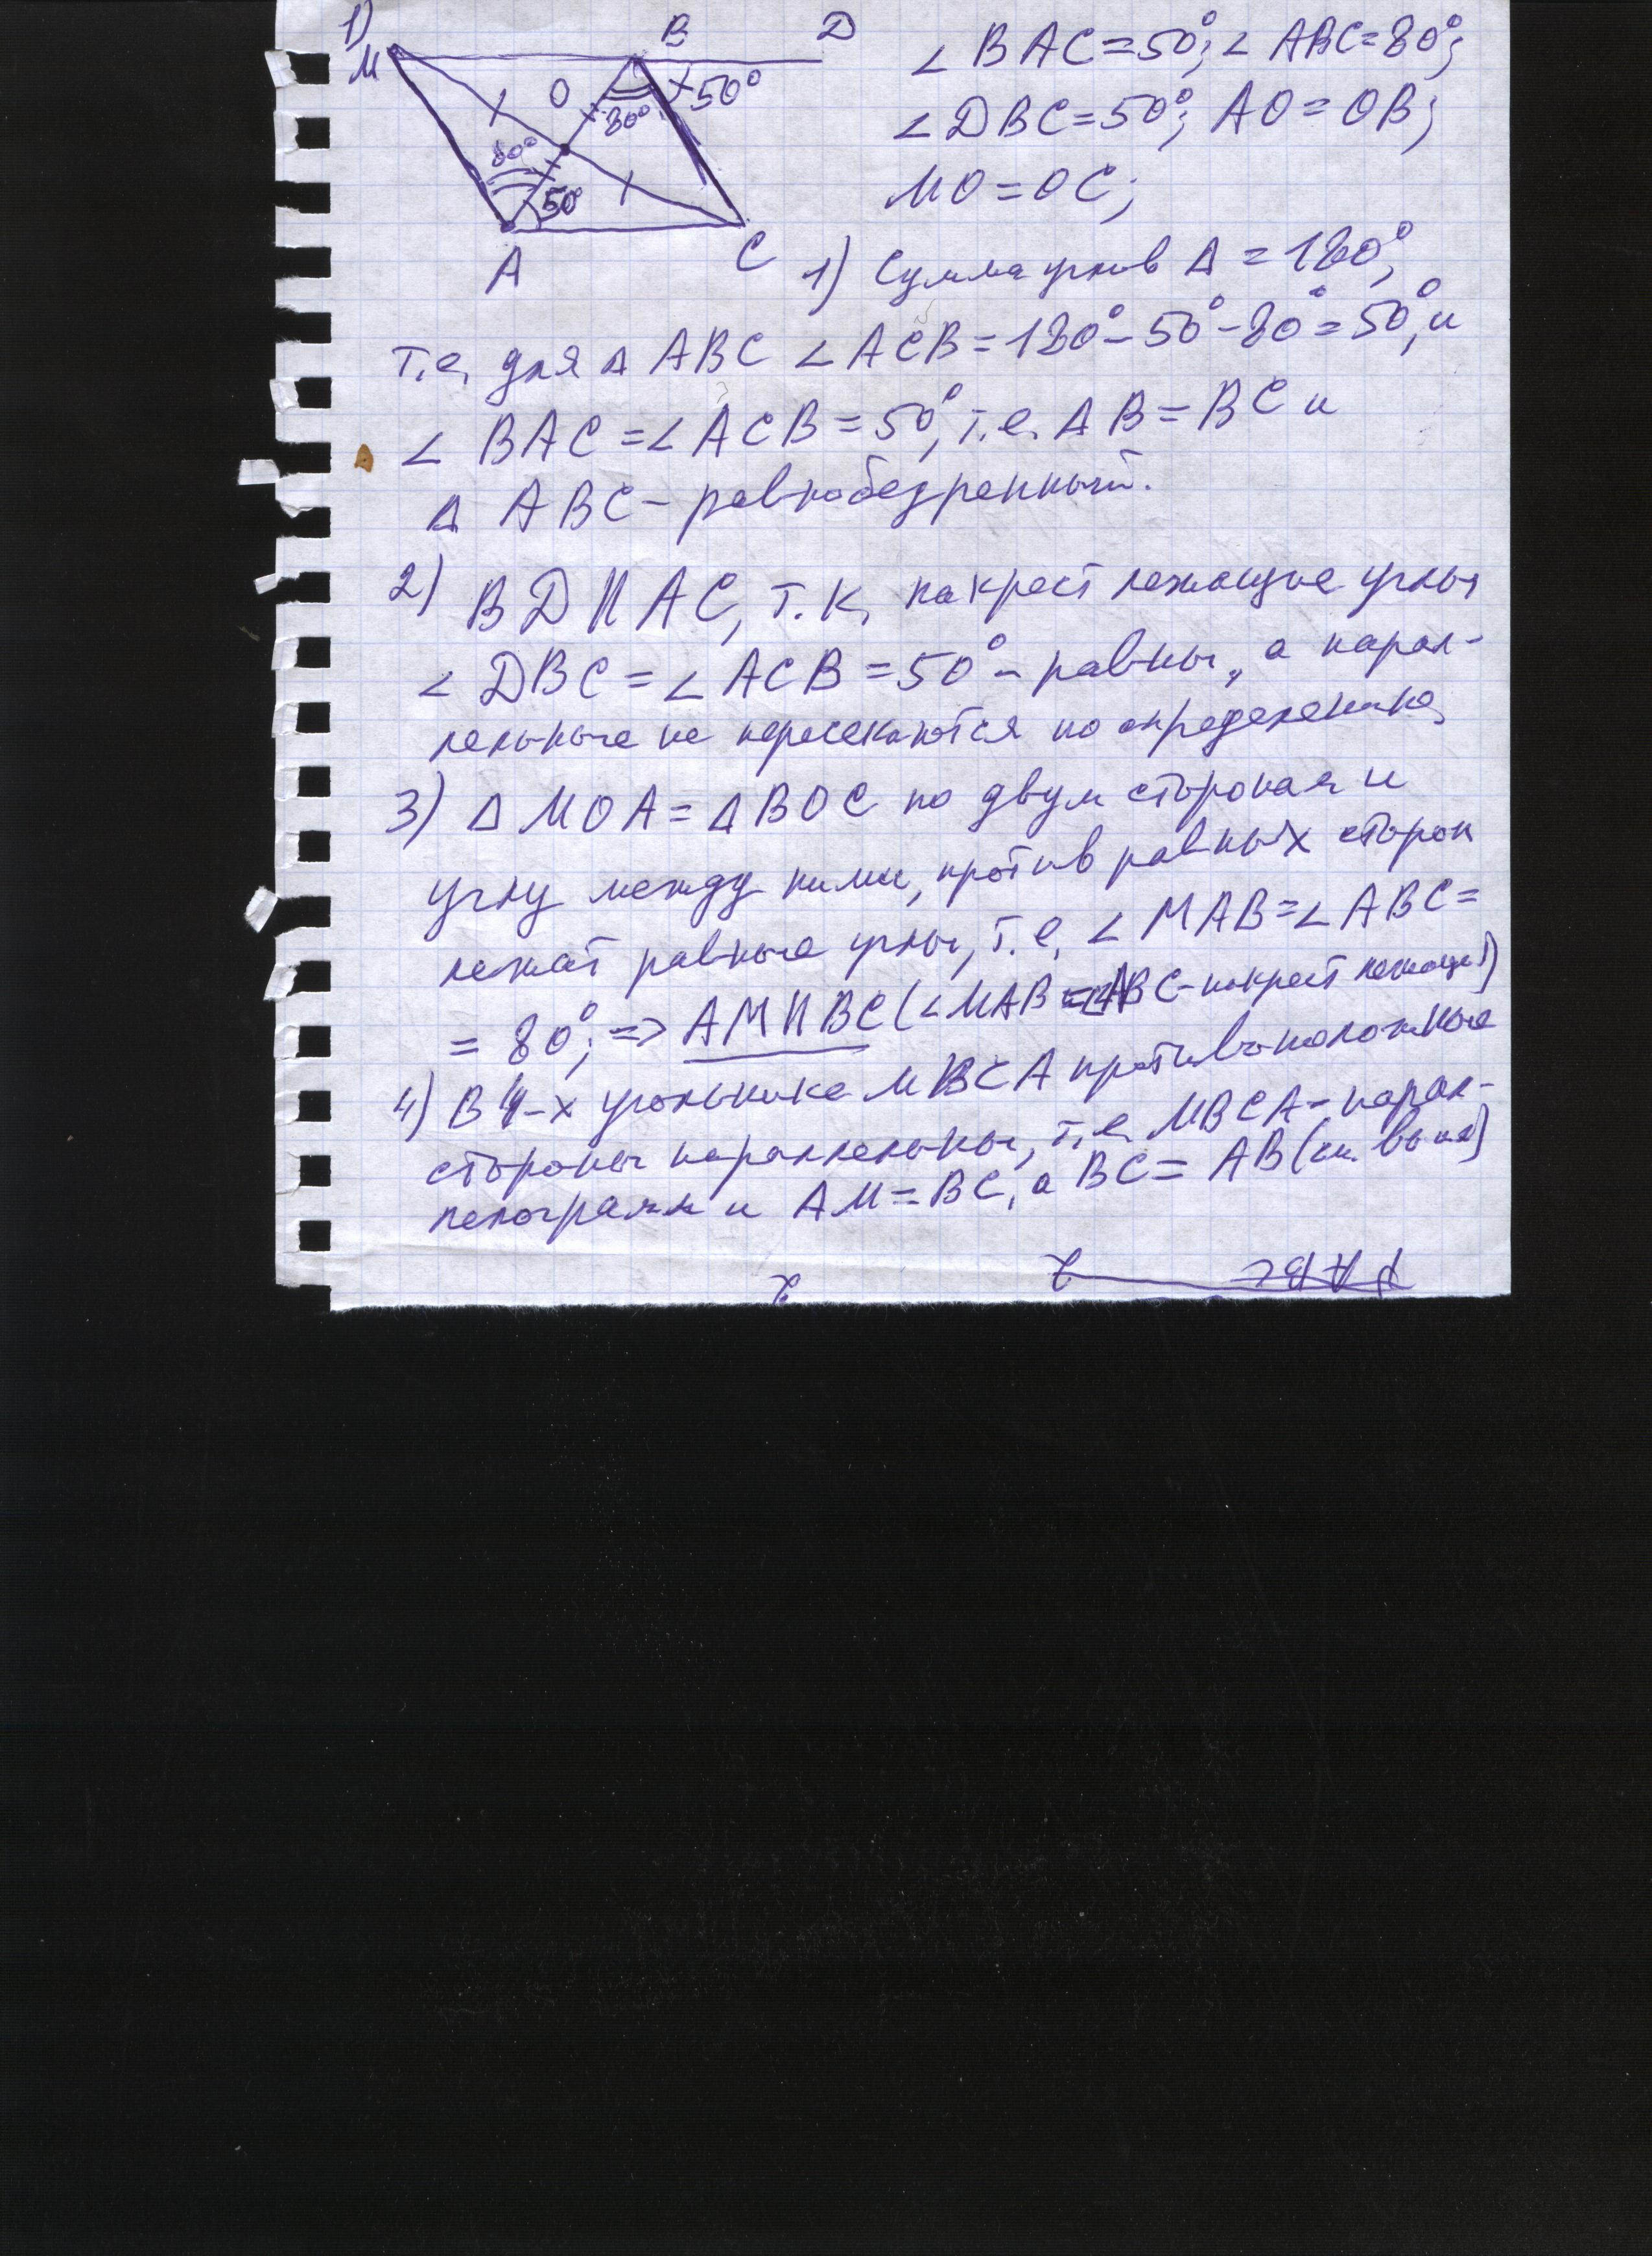 1)
М
В
D
О
80°
50°
80°
50°
А
С
∠ BAC = 50°; ∠ ABC = 80°;
∠ DBC = 50°; AO = OB;
MO = OC;
1) Сумма углов Δ = 180°,
т.е. для Δ ABC ∠ ACB = 180° - 50° - 80° = 50°, и
∠ BAC = ∠ ACB = 50°, т.е. AB = BC и
Δ ABC - равнобедренный.
2) BD || AC, т.к. накрест лежащие углы
∠ DBC = ∠ ACB = 50° - равны, а парал-
лельные не пересекаются по определению,
3) Δ MOA = Δ BOC по двум сторонам и
углу между ними, против равных сторон
лежат равные углы, т.е. ∠ MAB = ∠ ABC =
= 80°; => AM || BC (∠ MAB = ∠ABC - накрест лежащие)
4) В 4-х угольнике MBCA противоположные
стороны параллельны, т.е. MBCA - парал-
лелограмм и AM = BC, а BC = AB (см. выше)